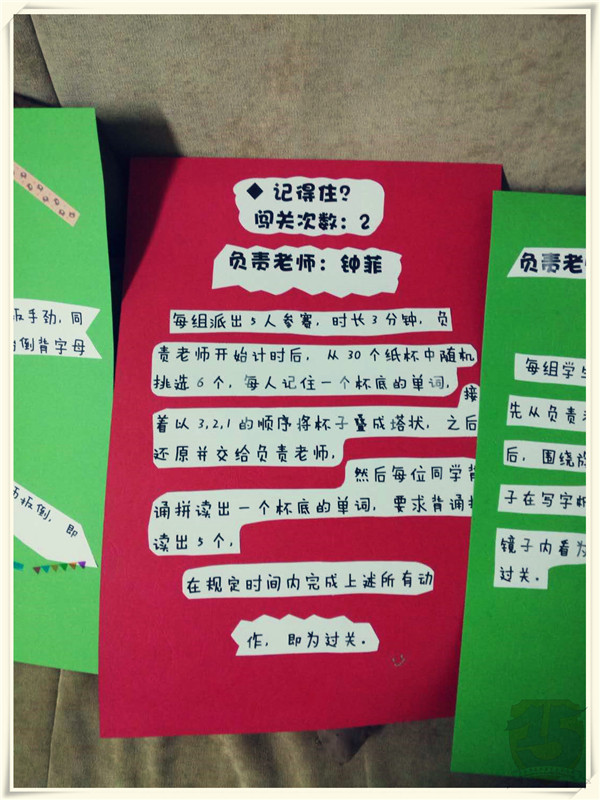 手劲，同
倒背字母
扳倒，即
◆ 记得住？
闯关次数：2
负责老师：钟菲
每组派出5人参赛，时长3分钟，负
责老师开始计时后，从30个纸杯中随机
挑选6个，每人记住一个杯底的单词，
接
着以3,2,1的顺序将杯子叠成塔状，之后
还原并交给负责老师，
然后每位同学背
诵拼读出一个杯底的单词，要求背诵拼
读出5个，
在规定时间内完成上述所有动
作，即为过关。
负责老
每组学生
先从负责
后，围绕
子在写字
镜子内看为
过关。